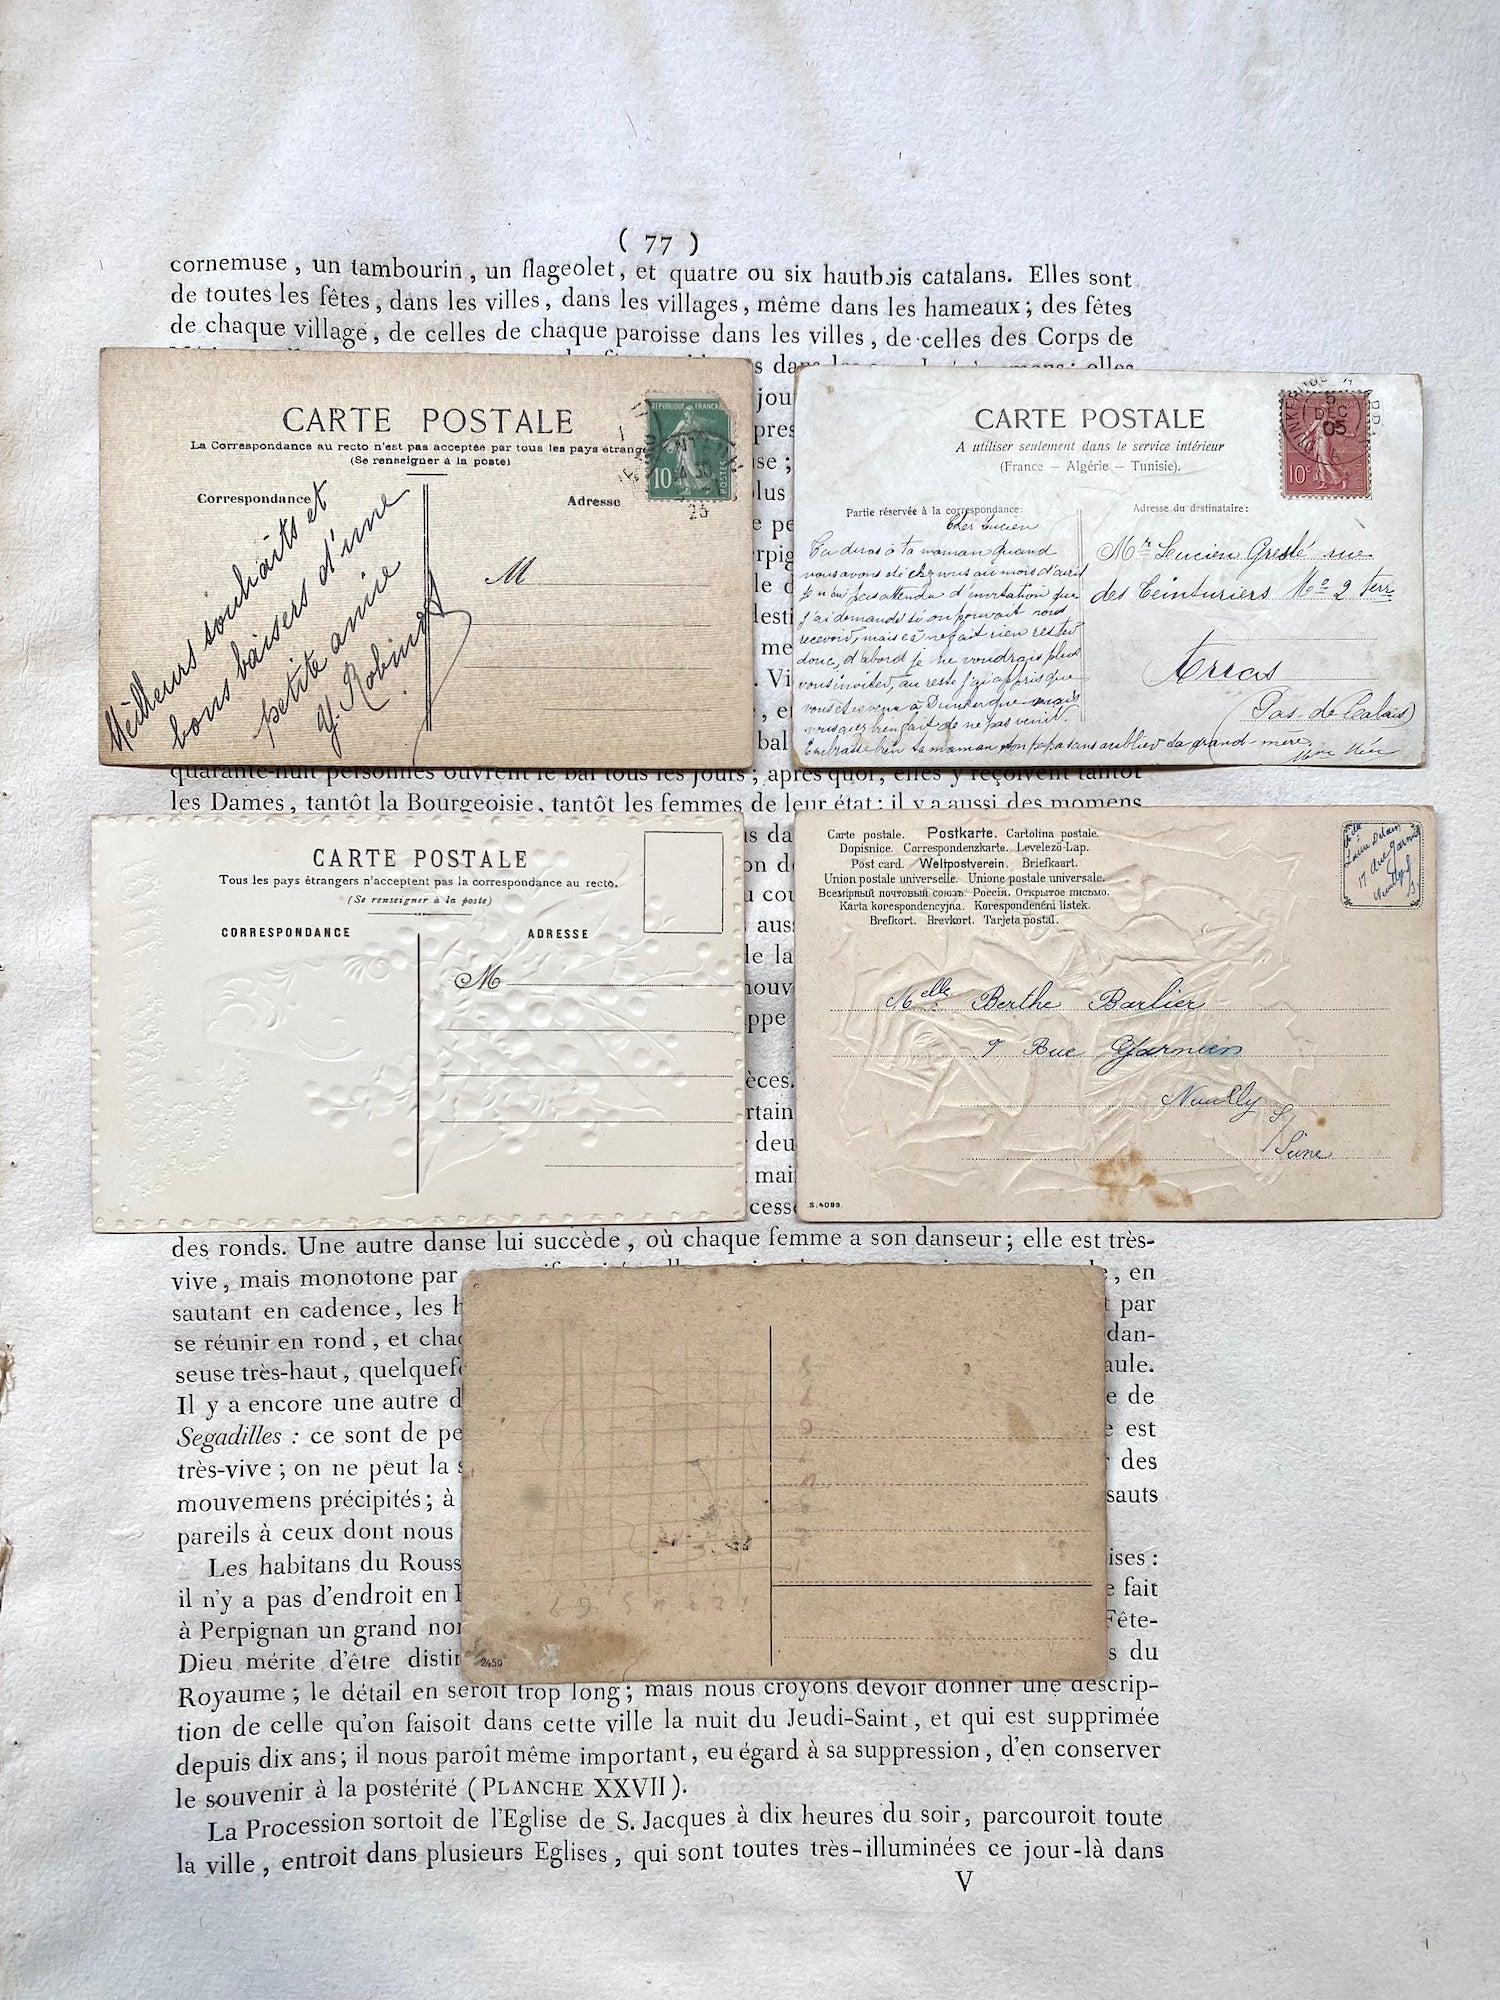 ( 77 )
cornemuse, un tambourin, un flageolet, et quatre ou six hautbois catalans. Elles sont
de toutes les fêtes, dans les villes, dans les villages, même dans les hameaux; des fêtes
de chaque village, de celles de chaque paroisse dans les villes, de celles des Corps de
CARTE POSTALE
La Correspondance au recto n'est pas acceptée par tous les pays étrang
(Se renseigner à la poste)
Correspondance
Adresse
RÉPUBLIQUE FRANÇAISE
10
POSTES
25
M
Meilleurs souhaits et
bons baisers d'une
petite amie
Y. Robin
CARTE POSTALE
A utiliser seulement dans le service intérieur
(France — Algérie — Tunisie).
5
DEC
05
10c
Partie réservée à la correspondance:
Adresse du destinataire:
Cher Lucien
Tu diras à ta maman quand
nous avons été chez vous au mois d'avril
je n'ai pas attendu d'invitation que
j'ai demandé si on pouvait nous
recevoir, mais cà ne fait rien restez
donc, d'abord je ne voudrais plus
vous inviter, au reste j'ai appris que
vous étes venu à Dunkerque mais
vous avez bien fait de ne pas venir.
Embrasse bien ta maman ton papa sans oublier ta grand-mère.
Mr Lucien Greslé rue
des Teinturiers No 2 terr
Arras
(Pas-de-Calais)
quarante-huit personnes ouvrent le bal tous les jours; après quoi, elles y reçoivent tantôt
les Dames, tantôt la Bourgeoisie, tantôt les femmes de leur état; il y a aussi des momens
CARTE POSTALE
Tous les pays étrangers n'acceptent pas la correspondance au recto.
(Se renseigner à la poste)
CORRESPONDANCE
ADRESSE
M
Carte postale. Postkarte. Cartolina postale.
Dopisnice. Correspondenzkarte. Levelező-Lap.
Post card. Weltpostverein. Briefkaart.
Union postale universelle. Unione postale universale.
Всемірный почтовый союзъ. Россія. Открытое письмо.
Karta korespondencyjna. Korespondenční listek.
Brefkort. Brevkort. Tarjeta postal.
17 Rue Garnier
Neuilly
Melle Berthe Barlier
9 Rue Garnier
Neuilly s/
Seine
S. 4099.
des ronds. Une autre danse lui succède, où chaque femme a son danseur; elle est très-
vive, mais monotone par
, en
sautant en cadence, les
par
se réunir en rond, et
dan-
seuse très-haut,
aule.
Il y a encore une autre
de
Segadilles : ce sont de
est
très-vive; on ne peut la
des
mouvemens précipités; à
sauts
pareils à ceux dont nous
Les habitans du
ises :
il n'y a pas d'endroit en
fait
à Perpignan un grand
Fête-
Dieu mérite d'être
du
2450
Royaume; le détail en seroit trop long; mais nous croyons devoir donner une descrip-
tion de celle qu'on faisoit dans cette ville la nuit du Jeudi-Saint, et qui est supprimée
depuis dix ans; il nous paroît même important, eu égard à sa suppression, d'en conserver
le souvenir à la postérité (PLANCHE XXVII).
La Procession sortoit de l'Eglise de S. Jacques à dix heures du soir, parcouroit toute
la ville, entroit dans plusieurs Eglises, qui sont toutes très-illuminées ce jour-là dans
V